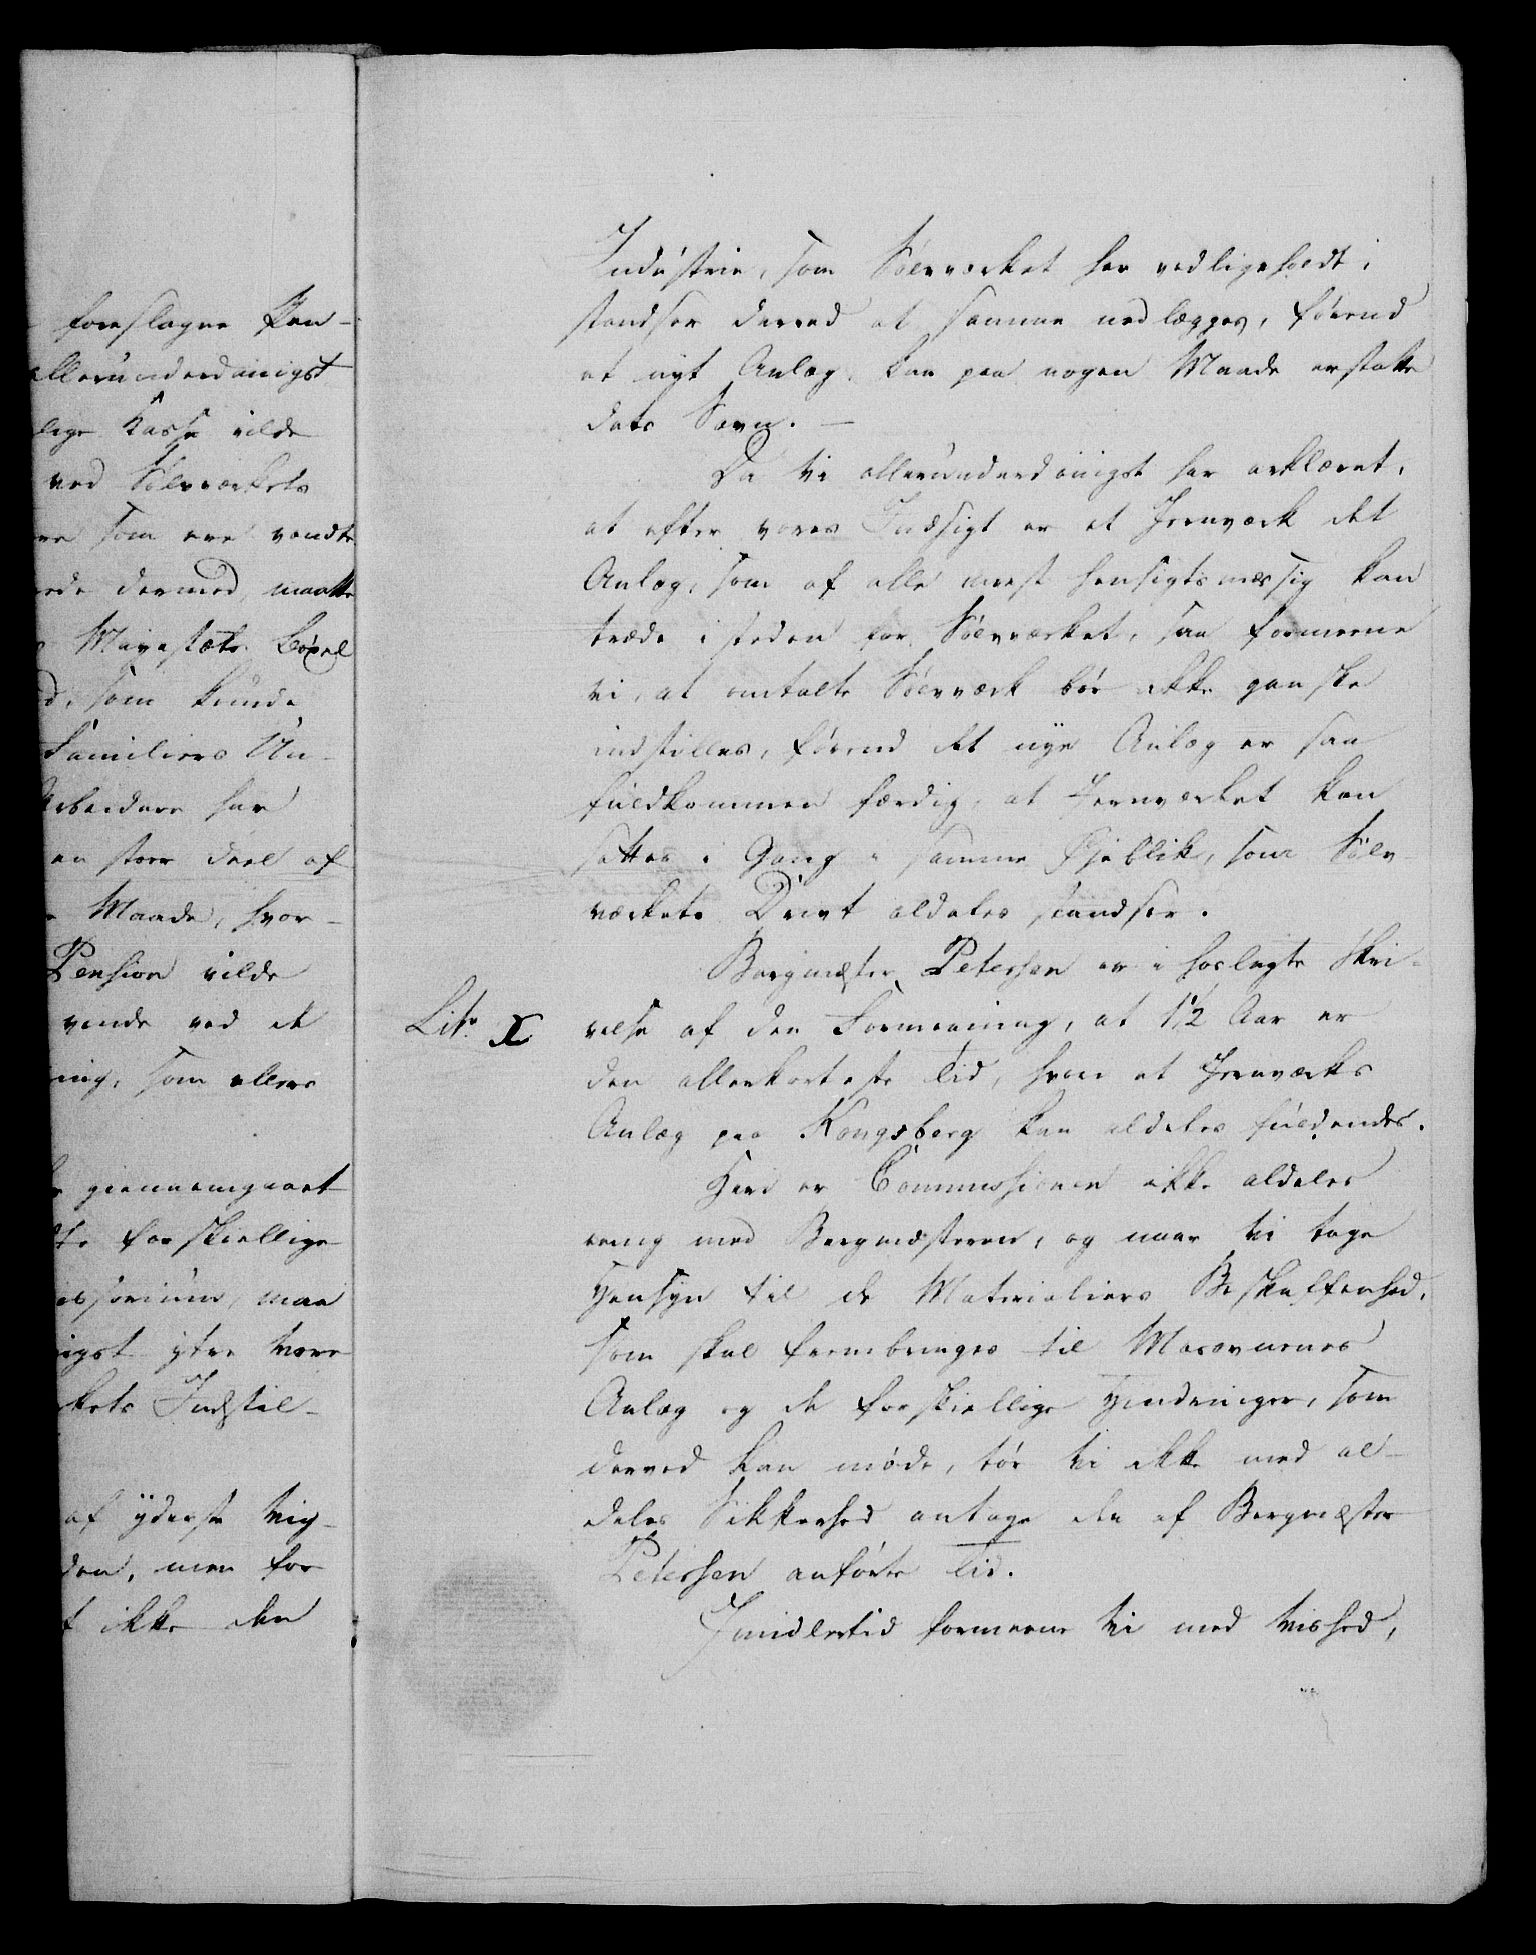 foreslagne Pen-
allerunderdanigst
lige Kasse vilde
ved Sölvværkets
som ere vendte
dermed, maatte
Majestæts Löxel
som kunde
Familiers Un-
Arbeidere har
en stor Deel af
Maade, hvor-
Pension vilde
vende ved et
ning, som ellers
giennemgaaet
forskiellige
issorium, maa
nigst ytre vore
kets Indstil-
af yderste Vig-
den, men for
t ikke den
Industrie, som Sölvværket har vedligeholdt,
standser derved at samme nedlægges, förend
et nyt Anlæg kan paa nogen Maade erstatte
dets Savn. —
Da Vi allerunderdanigst har erklæret,
at efter vores Indsigt er et Jernværk det
Anlæg, som af alle meest hensigtsmæssig kan
træde isteden for Sölvværket, saa formene
vi, at omtalte Sölvværk bör ikke ganske
indstilles, förend det nye Anlæg er saa
fuldkommen færdig, at Jernværket kan
sættes i Gang i samme Öjeblik, som Sölv-
værkets Drivt aldeles standser.
Bergmester Petersen er i hoslagte Skri-
Litr. X
velse af den Formening, at 1 1/2 Aar er
den allerkorteste Tid, hvori et Jernværks
Anlæg paa Kongsberg kan aldeles fuldendes.
Heri er Commissionen ikke aldeles
eenig med Bergmesteren, og naar Vi tage
Hensyn til de Materialiers Beskaffenhed,
som skal frembringes til Masovnenes
Anlæg og de forskiellige Hindringer, som
derved kan möde, tör Vi ikke med al-
deles Sikkerhed antage den af Bergmester
Petersen anförte Tid.
Imidlertid formene Vi med Vished,